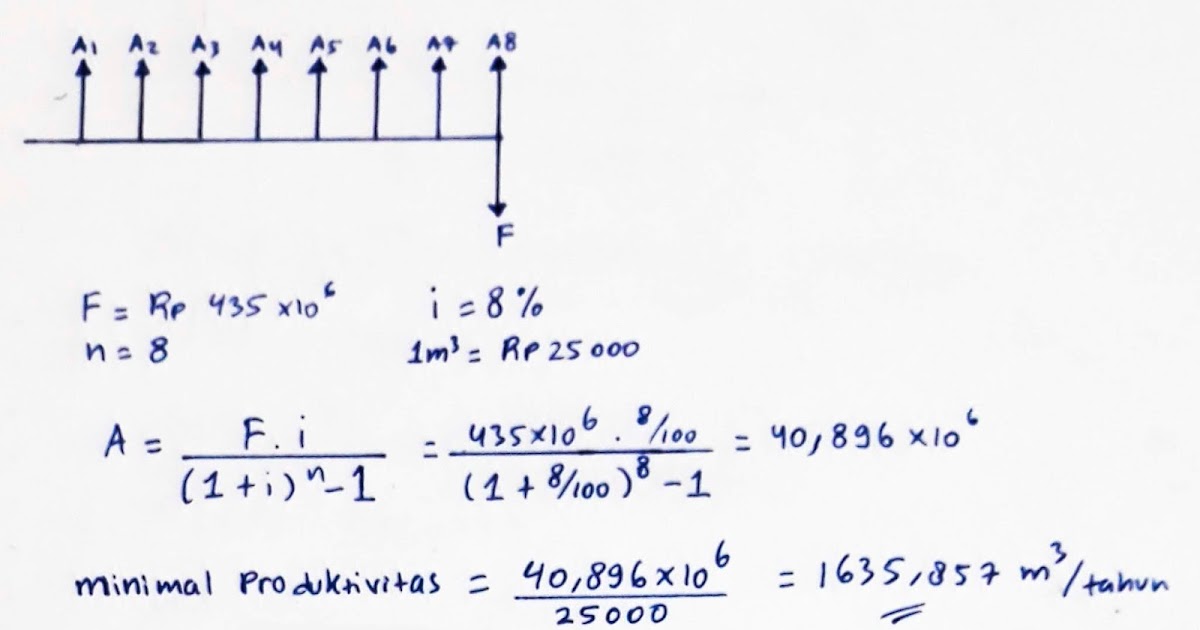 A1 A2 A3 A4 A5 A6 A7 A8
F
F = Rp 435 x10⁶ i = 8%
n = 8 1m³ = Rp 25 000
A = F . i / (1 + i)ⁿ - 1 = 435x10⁶ . 8/100 / (1 + 8/100)⁸ - 1 = 40,896 x10⁶
minimal Produktivitas = 40,896 x 10⁶ / 25000 = 1635,857 m³/tahun